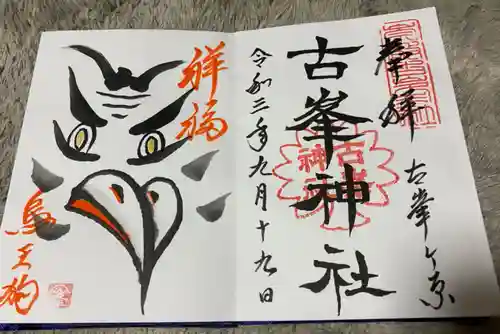 奉拝
古峯ヶ原
古峯神社
令和三年九月十九日
祥福
烏天狗